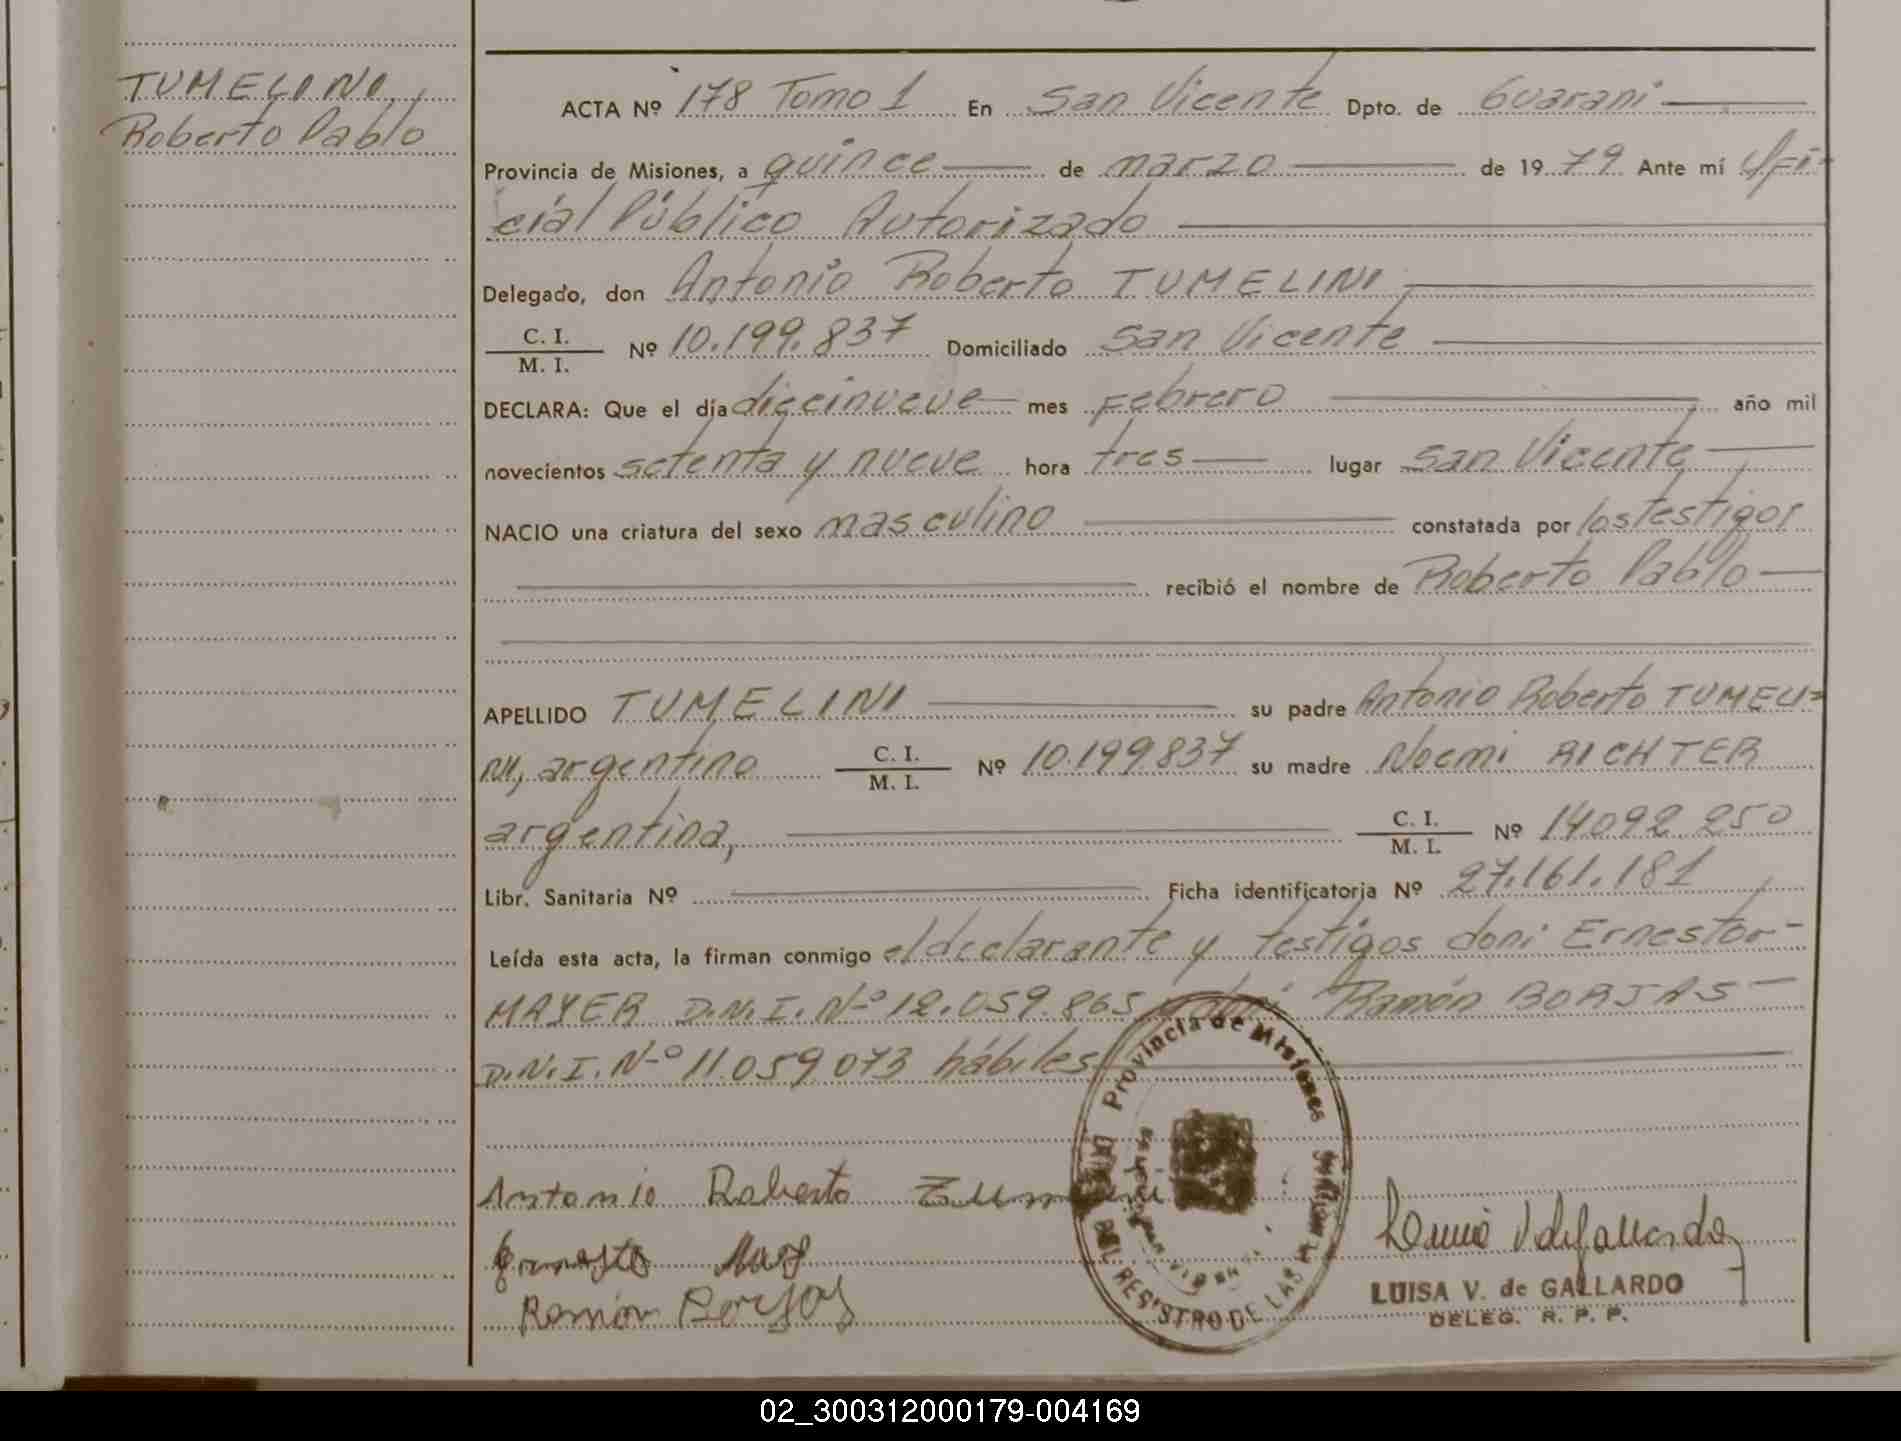 TUMELINI
Roberto Pablo
ACTA Nº 178 Tomo 1 En San Vicente Dpto. de Guaraní
Provincia de Misiones, a quince de marzo de 1979 Ante mí Ofi-
cial Público Autorizado
Delegado, don Antonio Roberto TUMELINI
C. I.
M. I. Nº 10.199.837 Domiciliado San Vicente
DECLARA: Que el día diecinueve mes Febrero año mil
novecientos setenta y nueve hora tres lugar San Vicente
NACIO una criatura del sexo masculino constatada por los testigos
recibió el nombre de Roberto Pablo
APELLIDO TUMELINI su padre Antonio Roberto TUMELI=
NI, argentino C. I. M. I. Nº 10.199.837 su madre Noemi RICHTER
argentina, C. I. M. I. Nº 14092.250
Libr. Sanitaria Nº Ficha identificatoria Nº 27.161.181
Leída esta acta, la firman conmigo el declarante y testigos don: Ernesto
MAYER D.N.I. Nº 12.059.865 Ramón BORJAS
D.N.I. Nº 11.059.073 hábiles
Provincia de Misiones
DEL REGISTRO DE LAS
Antonio Roberto
Ernesto
Ramón Borjas
LUISA V. de GALLARDO
DELEG. R. P. P.
02_300312000179-004169